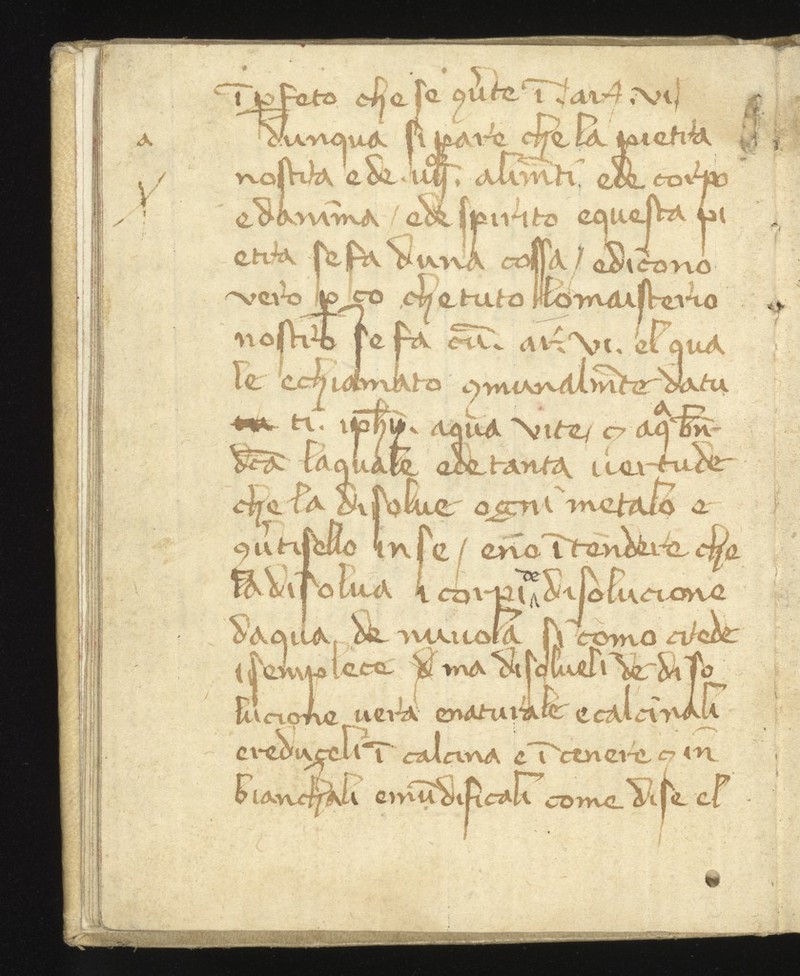 ī ꝑfeto che se ꝯu̓te ī .ar4. vi
a
dunqua si pare che la pietra
nostra e de .iiijº. alim̄ti. e de corpo
e danima / e de spirito e questa pi
etra se fa duna cossa / e dicono
vero ꝑ ço che tuto lo maisterio
nostro se fa cū. ar. vi. el qua
le e chiamato ꝯmunalm̄te da tu
ti. iph̄y. aqua vite / ꝯ aqᵃ bn̄
dc̄a la quale e de tanta uertude
che la disolue ogni metalo e
ꝯu̓tisello in se / e no ītendere che
la disolua i corpi de disolucione
daqua de nuuola si como crede
i semplece ma disolueli de diso
lucione uera e naturale e calcinali
e reduçeli ī calcina e ī cenere ꝯ in
bianchali e mūdificali come dise el